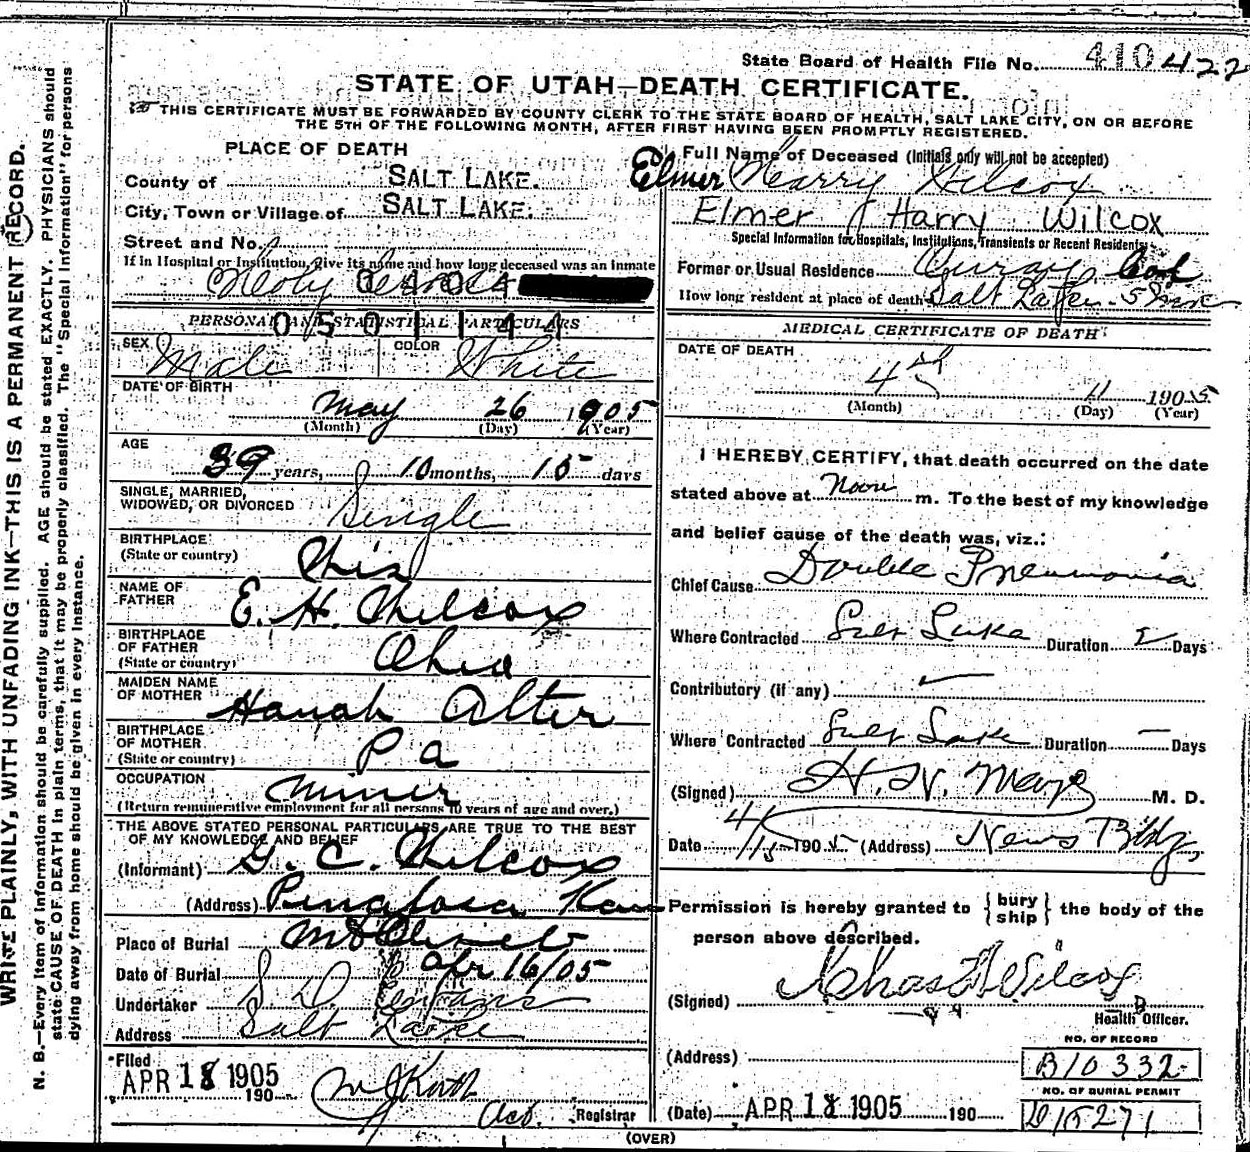 State Board of Health File No. 410 422
STATE OF UTAH—DEATH CERTIFICATE.
THIS CERTIFICATE MUST BE FORWARDED BY COUNTY CLERK TO THE STATE BOARD OF HEALTH, SALT LAKE CITY, ON OR BEFORE
THE 5TH OF THE FOLLOWING MONTH, AFTER FIRST HAVING BEEN PROMPTLY REGISTERED.
WRITE PLAINLY, WITH UNFADING INK—THIS IS A PERMANENT RECORD.
N. B.—Every item of information should be carefully supplied. AGE should be stated EXACTLY. PHYSICIANS should
state CAUSE OF DEATH in plain terms, that it may be properly classified. The "Special Information" for persons
dying away from home should be given in every instance.
PLACE OF DEATH
County of SALT LAKE.
City, Town or Village of SALT LAKE.
Street and No.
If in Hospital or Institution, give its name and how long deceased was an inmate
Holy 0404
PERSONAL AND STATISTICAL PARTICULARS
0501144
SEX Male COLOR White
DATE OF BIRTH
May 26 1905
(Month) (Day) (Year)
AGE
39 years, 10 months, 15 days
SINGLE, MARRIED,
WIDOWED, OR DIVORCED Single
BIRTHPLACE
(State or country) Ohio
NAME OF
FATHER E. H. Wilcox
BIRTHPLACE
OF FATHER
(State or country) Ohio
MAIDEN NAME
OF MOTHER Hanah Alter
BIRTHPLACE
OF MOTHER
(State or country) Pa
OCCUPATION Miner
(Return remunerative employment for all persons 10 years of age and over.)
THE ABOVE STATED PERSONAL PARTICULARS ARE TRUE TO THE BEST
OF MY KNOWLEDGE AND BELIEF
(Informant) G. C. Wilcox
(Address) Penalosa Kan
Place of Burial Mt Olivet
Date of Burial Apr 16/05
Undertaker S. D. Evans
Address Salt Lake
Filed
APR 18 1905 190
Act. Registrar
Full Name of Deceased (Initials only will not be accepted)
Elmer Harry Wilcox
Elmer Harry Wilcox
Special Information for Hospitals, Institutions, Transients or Recent Residents:
Former or Usual Residence
How long resident at place of death Salt Lake
MEDICAL CERTIFICATE OF DEATH
DATE OF DEATH
4 11 1905
(Month) (Day) (Year)
I HEREBY CERTIFY, that death occurred on the date
stated above at Noon m. To the best of my knowledge
and belief cause of the death was, viz.:
Chief Cause Double Pneumonia
Where Contracted Salt Lake Duration Days
Contributory (if any)
Where Contracted Salt Lake Duration — Days
(Signed) H. N. Mayo M. D.
Date 4/15 1905 (Address) News Bldg,
Permission is hereby granted to { bury ship } the body of the
person above described.
(Signed) Chas F Wilcox
Health Officer.
NO. OF RECORD
(Address) B10332
NO. OF BURIAL PERMIT
(Date) APR 18 1905 190 D15271
(OVER)